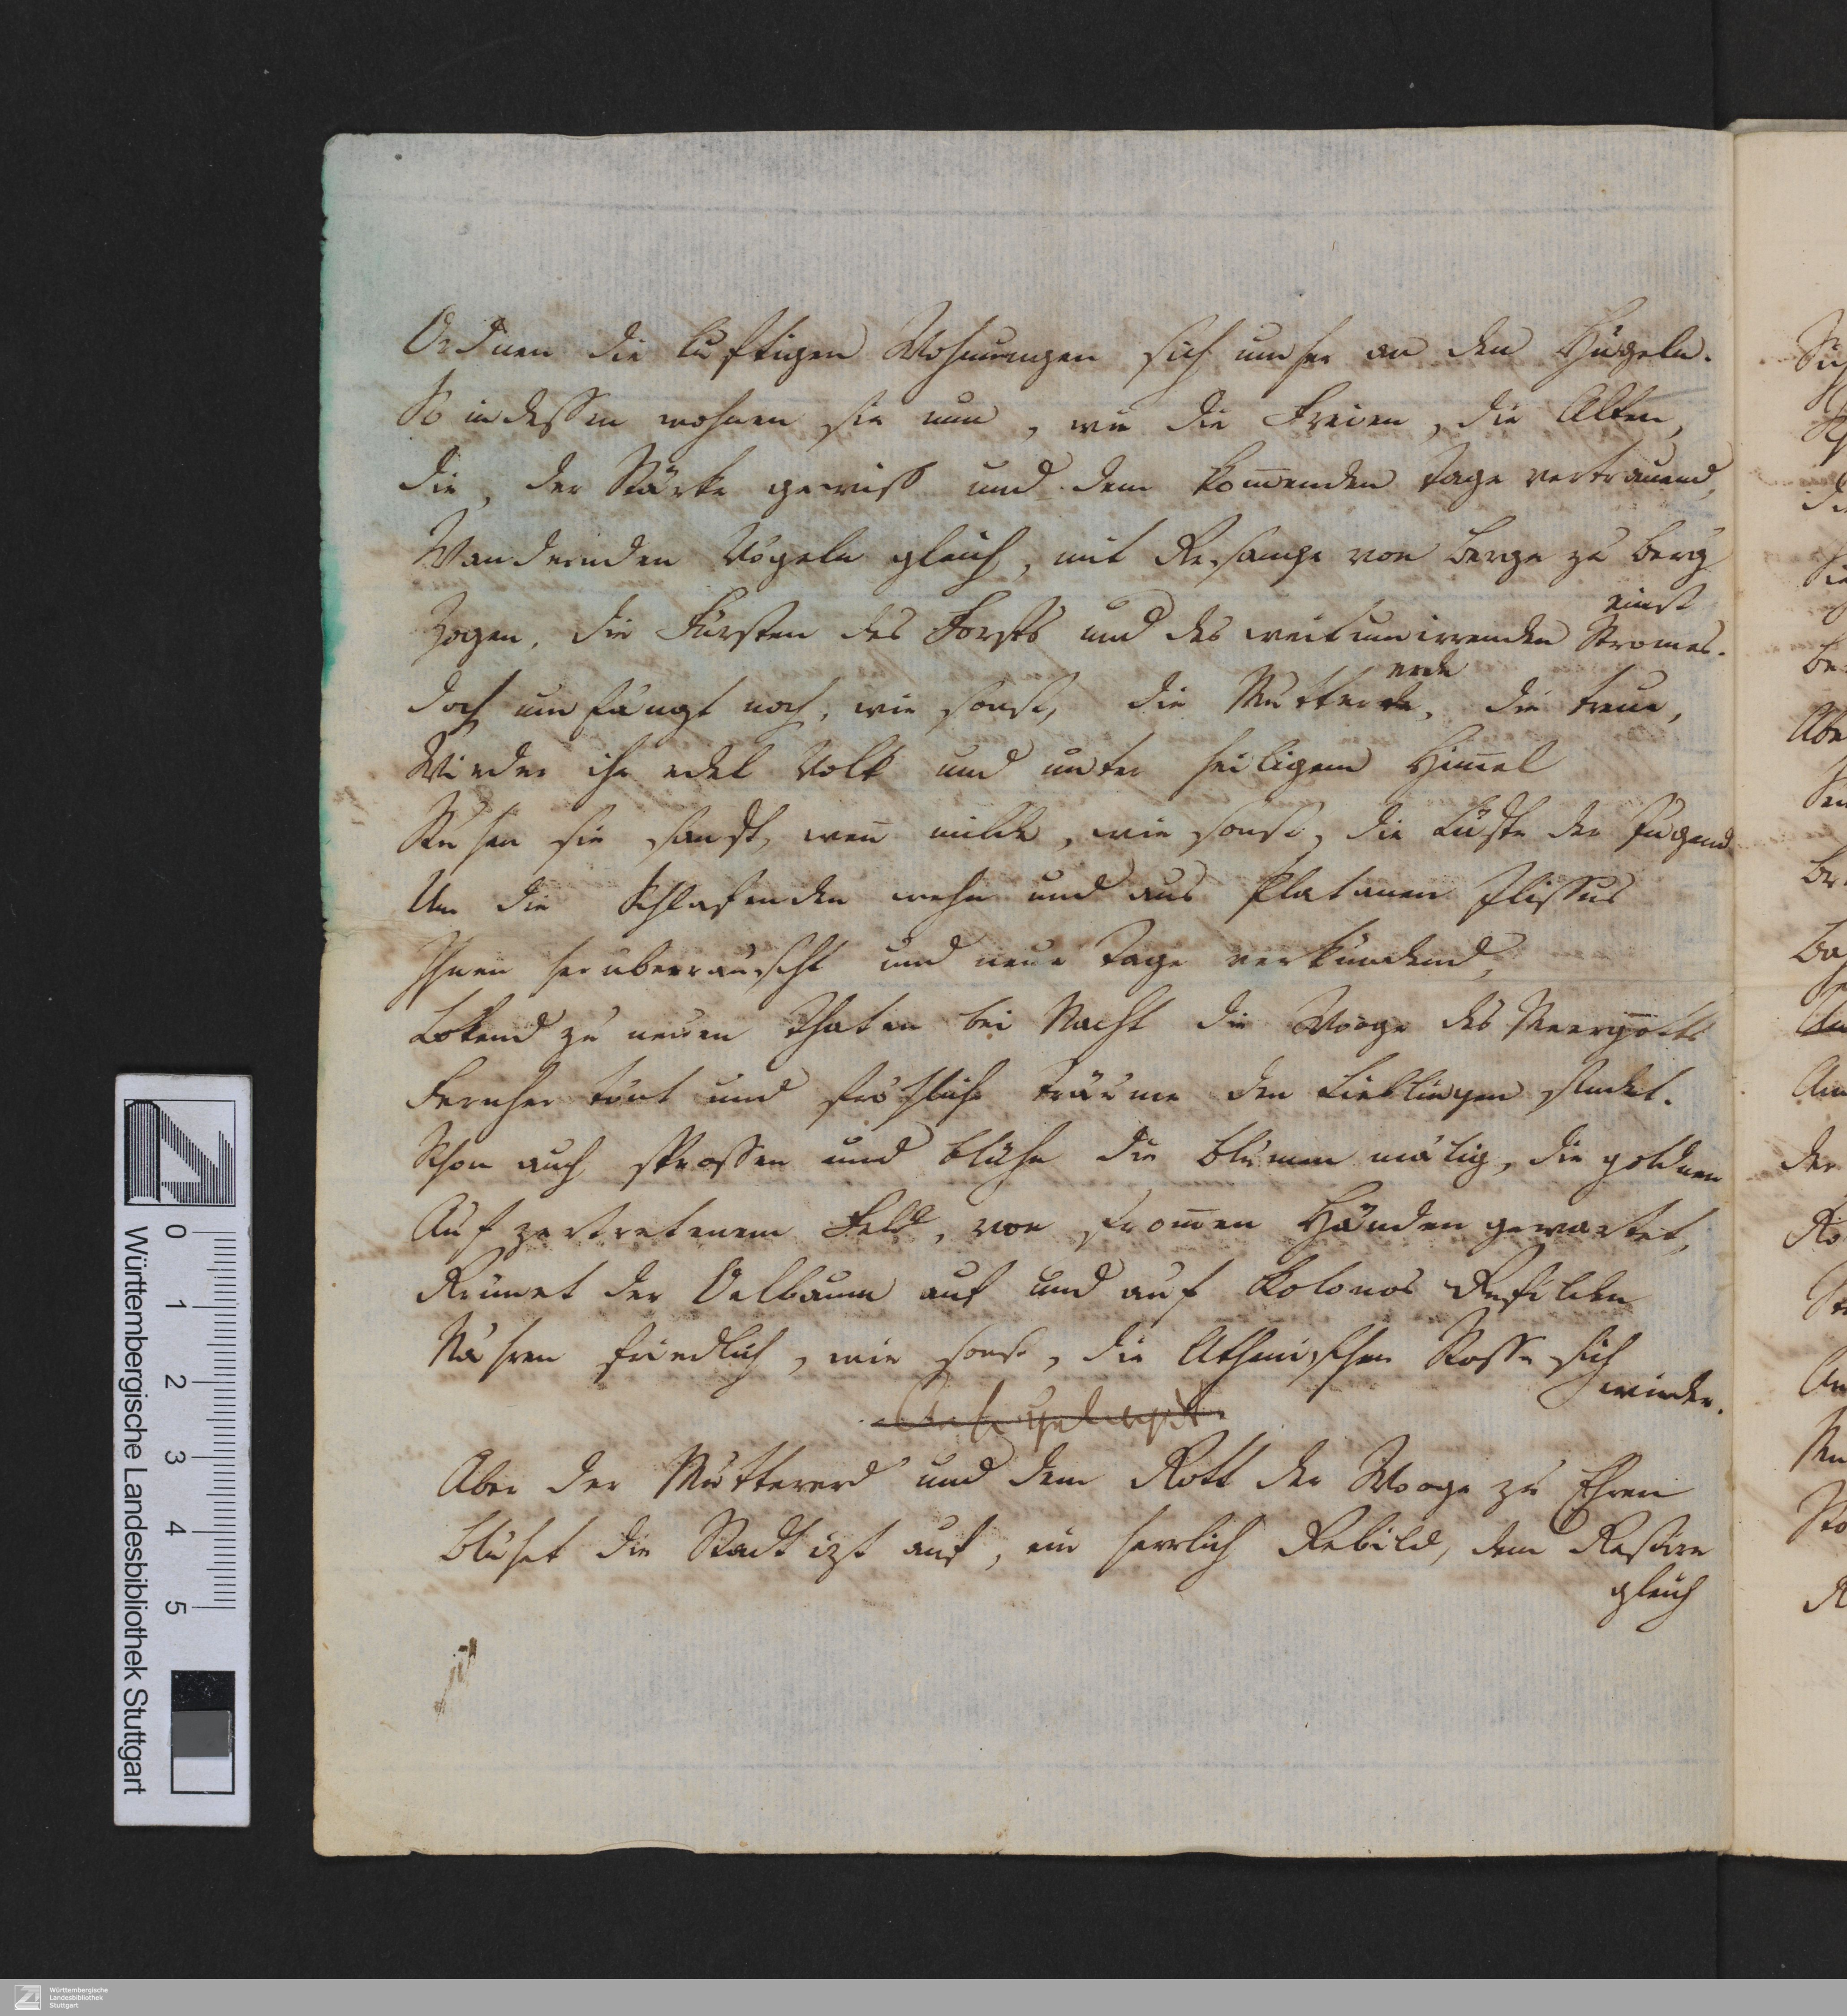 Ordnen die luftigen Wohnungen sich umher an den Hügeln.
So indessen wohnen sie nun, wie die Freien, die Alten,
Die, der Stärke gewiß und dem kom̅enden Tage vertrauend,
Wandernden Vögeln gleich, mit Gesange von Berge zu Berg
einst
Zogen, die Fürsten des Forsts und des weitumirrenden Stromes.
erde
Doch umfängt noch, wie sonst, die Mutterde, die treue,
Wieder ihr edel Volk und unter heiligem Him̅el
Ruhen sie sanft, wen̅ milde, wie sonst, die Lüfte der Jugend
Um die Schlafenden wehn und aus Platanen Ilissus
Ihnen herüberrauscht und neue Tage verkündend,
Lokend zu neuen Thaten bei Nacht die Wooge des Meergotts
Fernher tönt und fröhliche Träume den Lieblingen sendet.
Schon auch sprossen und blühn die Blumen mälig, die goldnen
Auf zertretenem Feld, von from̅en Händen gewartet,
Grünet der Oelbaum auf und auf Kolonos Gefilden
Nähren friedlich, wie sonst, die Athenischen Rosse sich
wieder.
Aber der Muttererd' und dem Gott der Wooge zu Ehren
Blühet die Stadt izt auf, ein herrlich Gebild, dem Gestirn
gleich
Sich
Abe
Ber
der
Württembergische Landesbibliothek Stuttgart
0 1 2 3 4 5
Württembergische
Landesbibliothek
Stuttgart